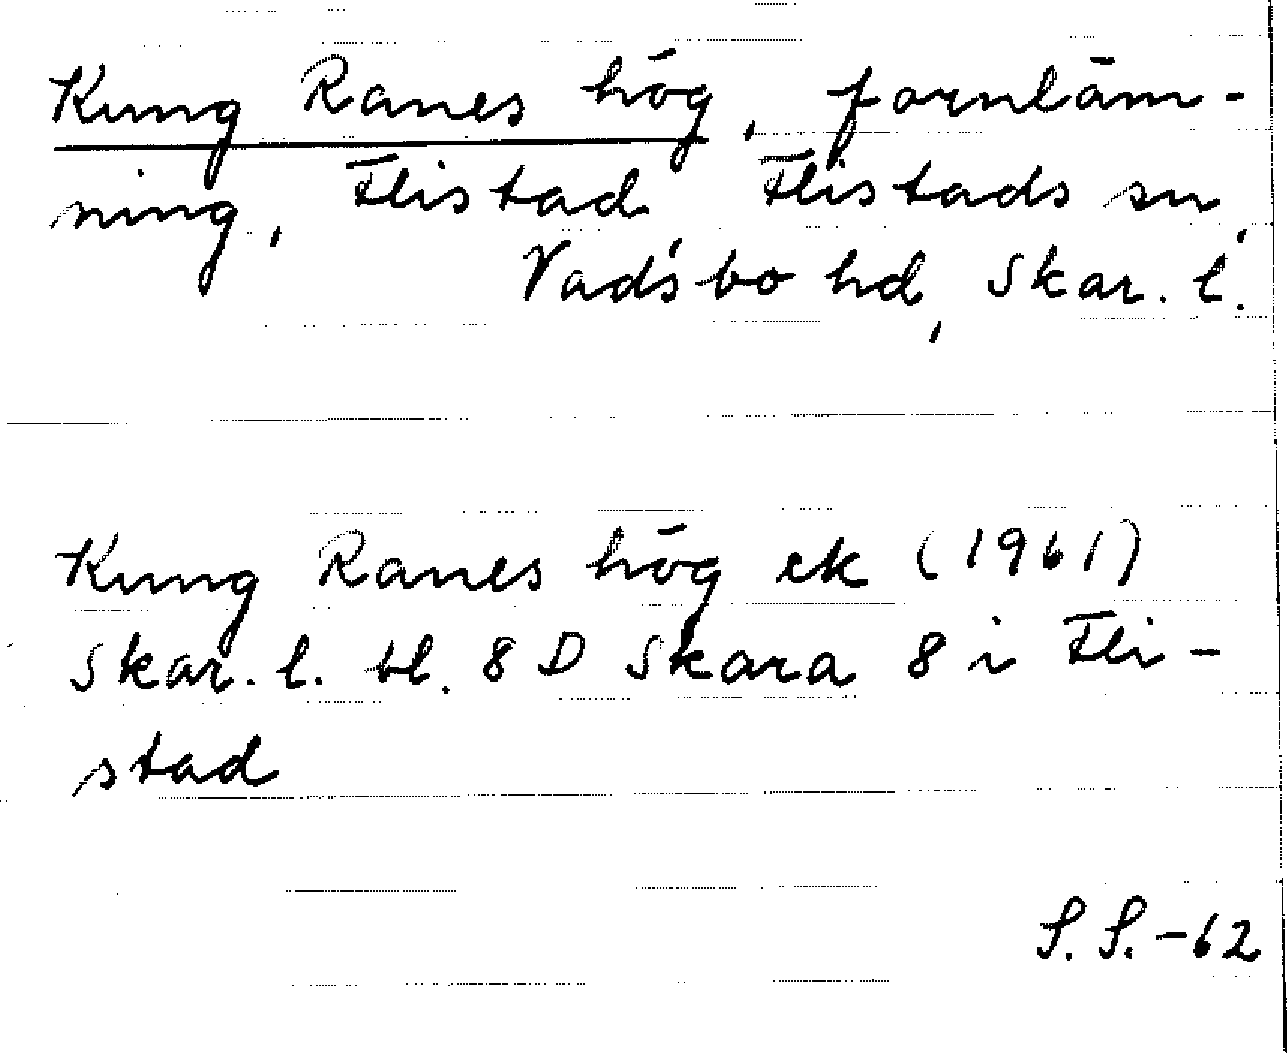 Kung Ranes hög, fornläm-
ning, Flistad, Flistads sn,
Vadsbo hd, Skar. l.
Kung Ranes hög ek (1961)
Skar. l. bl. 8 D Skara 8 i Fli-
stad
S. S. -62